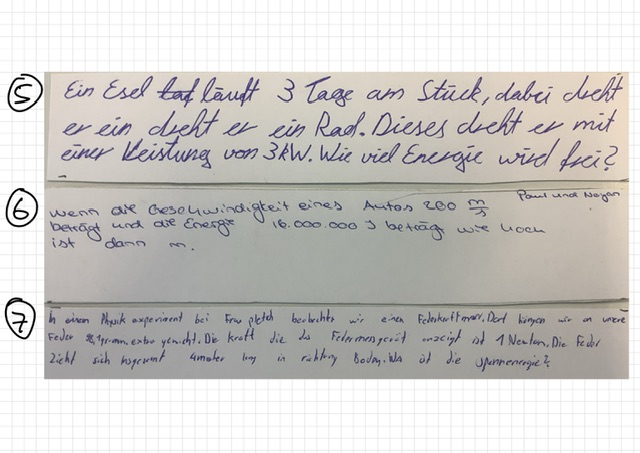 5
Ein Esel läuft 3 Tage am Stück, dabei dreht
er ein dreht er ein Rad. Dieses dreht er mit
einer Leistung von 3kW. Wie viel Energie wird frei?
6
Paul und
wenn die Geschwindigkeit eines Autos 280 m/s
beträgt und die Energie 16.000.000 J beträgt wie hoch
ist dann m.
7
In einen Physik experiment bei Frau beobachte wir einen Federkraftmesser. Dort hängen wir an unsere
Feder extra gewicht. Die kraft die das Federmessgerät anzeigt ist 1 Newton. Die Feder
zieht sich insgesamt 4meter lang in richtung Boden. Was ist die spannenergie?